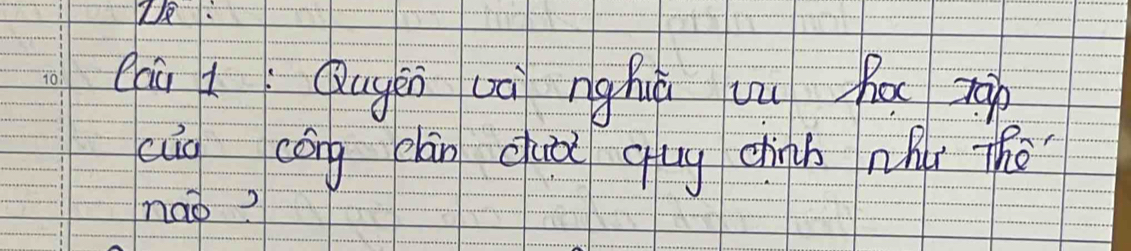 Đề :
Câu 1 : Quyền và nghĩa vụ học tập
của công dân được quy định như thế
nào ?